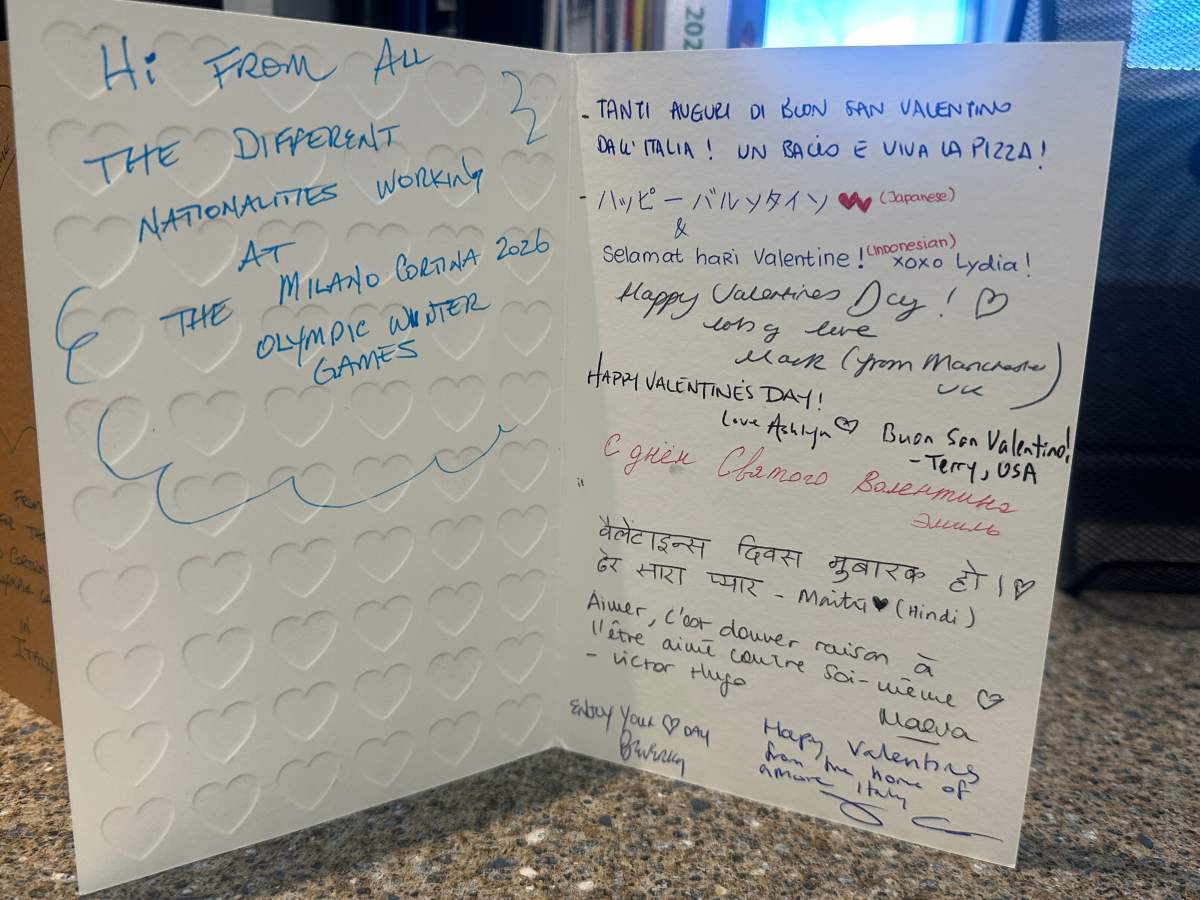 Hi FROM ALL
THE DIFFERENT
NATIONALITIES WORKING
AT
MILANO CORTINA 2026
THE
OLYMPIC WINTER
GAMES
- TANTI AUGURI DI BUON SAN VALENTINO
DALL'ITALIA! UN BACIO E VIVA LA PIZZA!
- ハッピーバルンタイン (Japanese)
&
Selamat hari Valentine! (Indonesian) xoxo Lydia!
Happy Valentines Day! ♡
long live
Mark (from Manchester
UK)
HAPPY VALENTINE'S DAY!
Love Ashlyn ♡
Buon San Valentino!
- Terry, USA
С днём Святого Валентина
Эмиль
वैलेंटाइन्स दिवस मुबारक हो। ♡
ढेर सारा प्यार - Maitri ♥ (Hindi)
Aimer, c'est donner raison à
l'être aimé contre soi-même ♡
- Victor Hugo
Maeva
ENJOY YOUR ♡ DAY
Beverley
Happy Valentins
from the home of
amore, Italy
202
FROM
FOR THE
CORTINA
in
ITALY